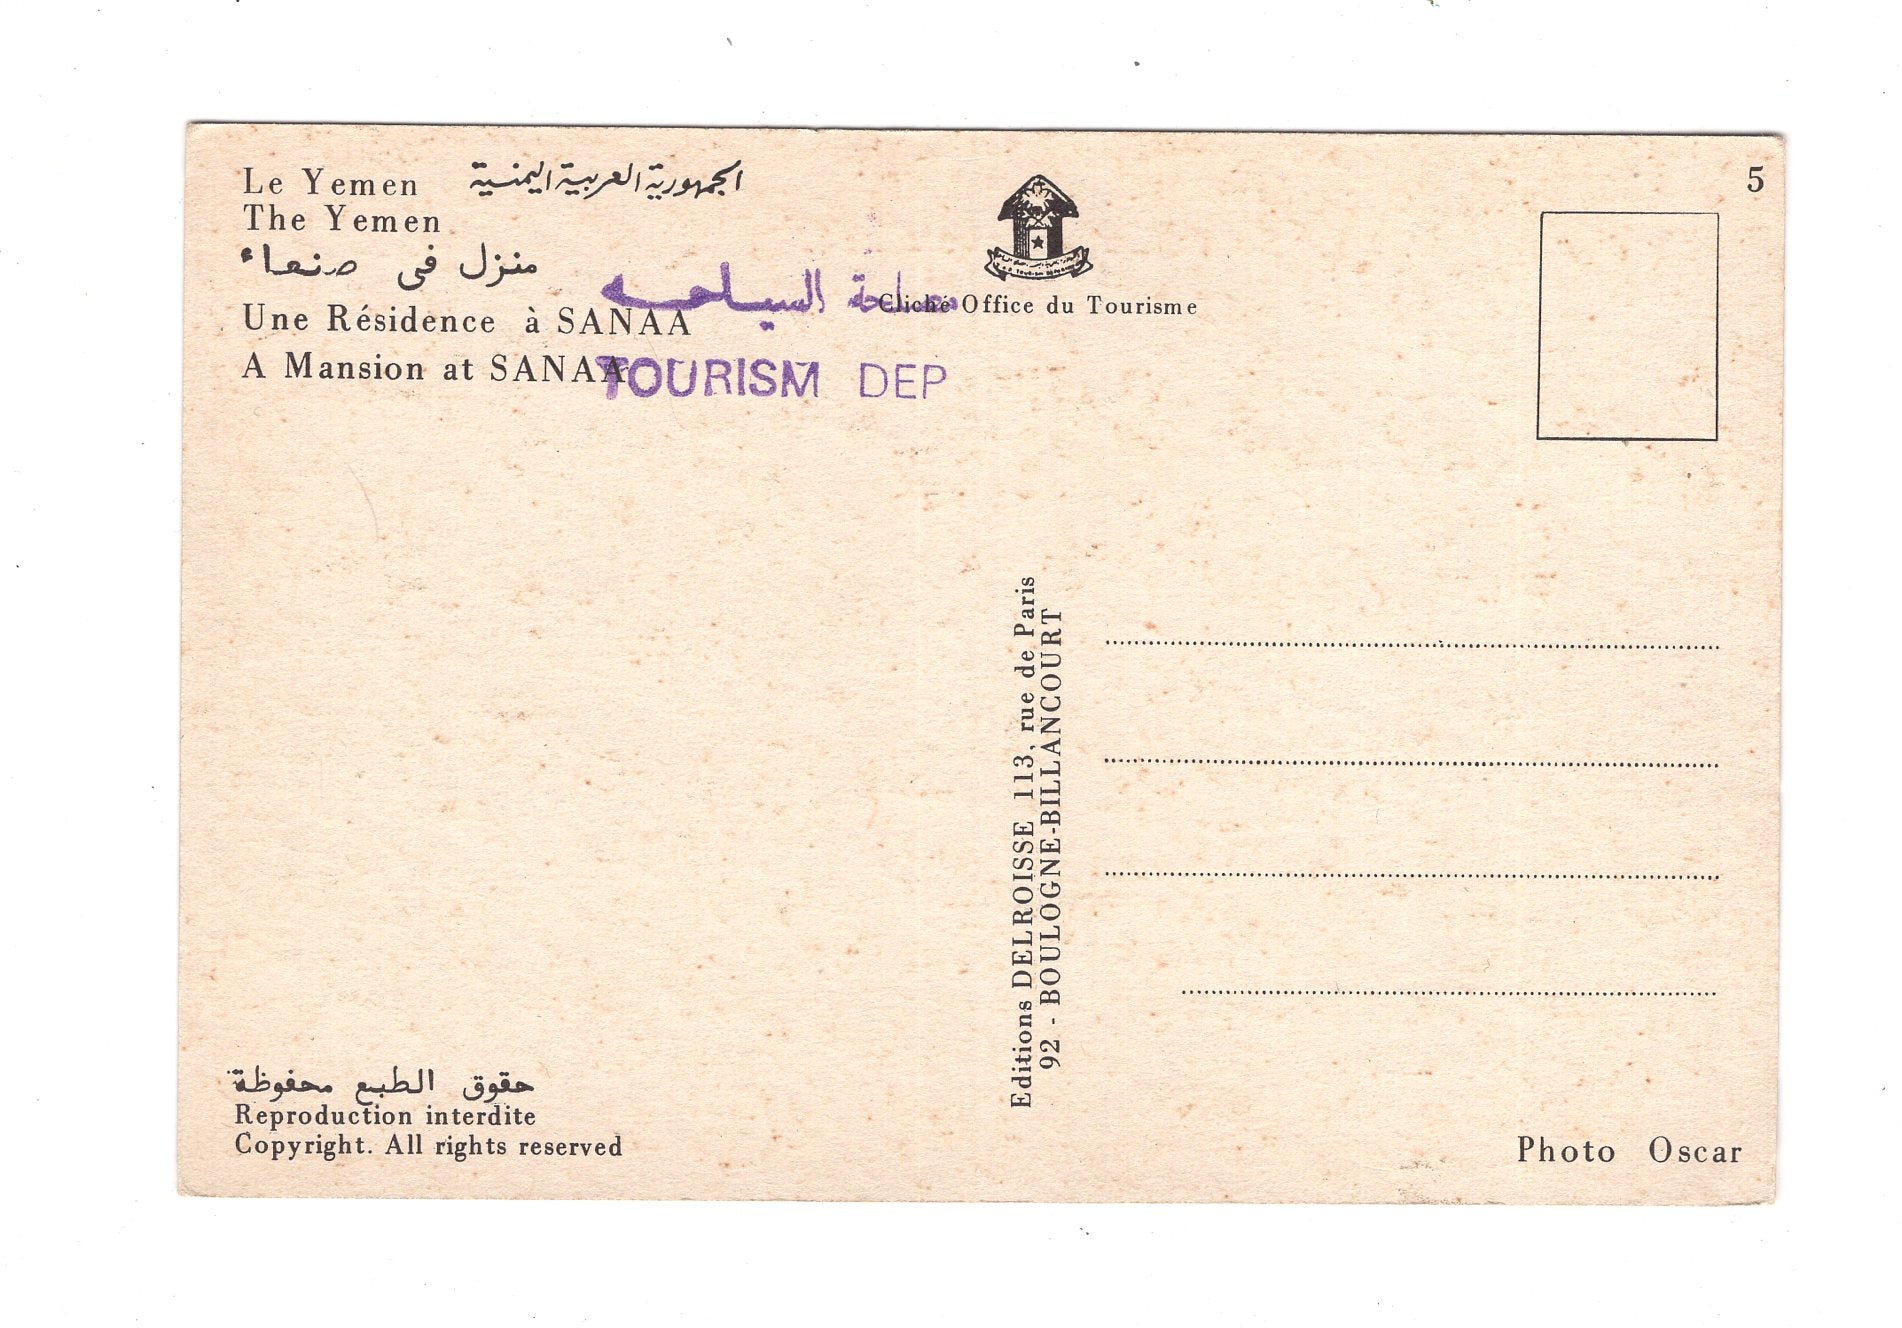 Le Yemen الجمهورية العربية اليمنية
The Yemen
منزل فى صنعاء
Une Résidence à SANAA
A Mansion at SANAA
5
Cliché Office du Tourisme
مصلحة السياحه
TOURISM DEP
Editions DELROISSE 113, rue de Paris
92 - BOULOGNE-BILLANCOURT
حقوق الطبع محفوظة
Reproduction interdite
Copyright. All rights reserved
Photo Oscar